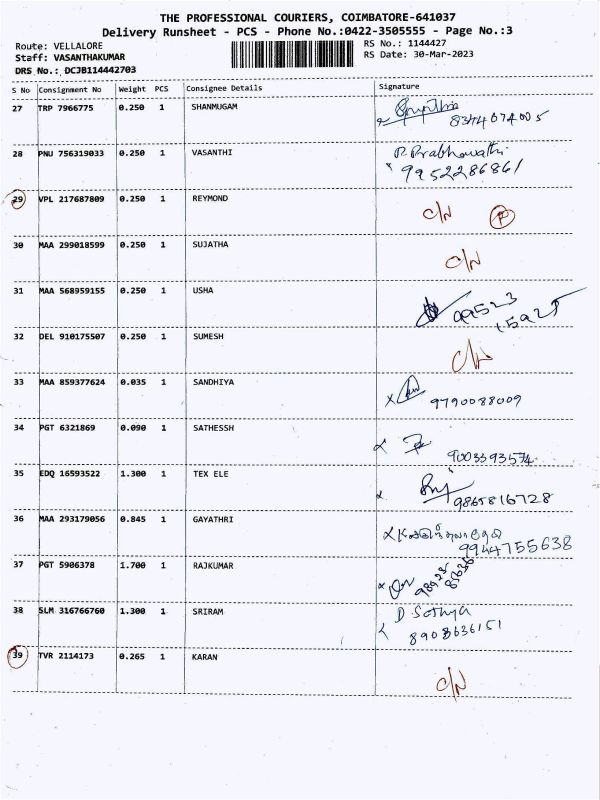 THE PROFESSIONAL COURIERS, COIMBATORE-641037
Delivery Runsheet - PCS - Phone No.:0422-3505555 - Page No.:3
Route: VELLALORE RS No.: 1144427
Staff: VASANTHAKUMAR RS Date: 30-Mar-2023
DRS No.: DCJB114442703
S No Consignment No Weight PCS Consignee Details Signature
27 TRP 7966775 0.250 1 SHANMUGAM
28 PNU 756319033 0.250 1 VASANTHI P. Prabhavathi
9952286861
29 VPL 217687809 0.250 1 REYMOND C/N P
30 MAA 299018599 0.250 1 SUJATHA C/N
31 MAA 568959155 0.250 1 USHA 99523
15925
32 DEL 910175507 0.250 1 SUMESH C/N
33 MAA 859377624 0.035 1 SANDHIYA
9790088009
34 PGT 6321869 0.090 1 SATHESSH
9003393574
35 EDQ 16593522 1.300 1 TEX ELE
9865816728
36 MAA 293179056 0.845 1 GAYATHRI
9944755638
37 PGT 5906378 1.700 1 RAJKUMAR
38 SLM 316766760 1.300 1 SRIRAM D. Sathya
8903636151
39 TVR 2114173 0.265 1 KARAN C/N